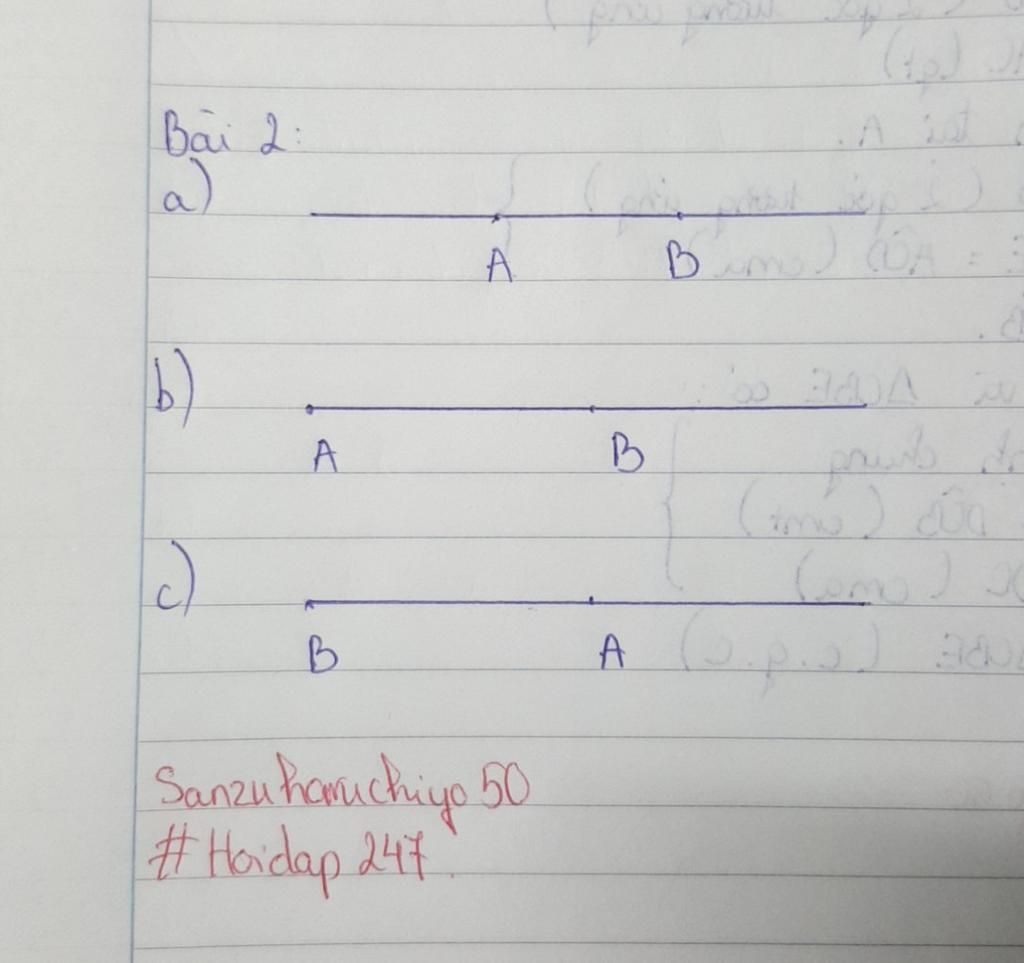 Bài 2:
a)
A B
b)
A B
c)
B A
Sanzuharuchiyo 50
# Hoidap 247.